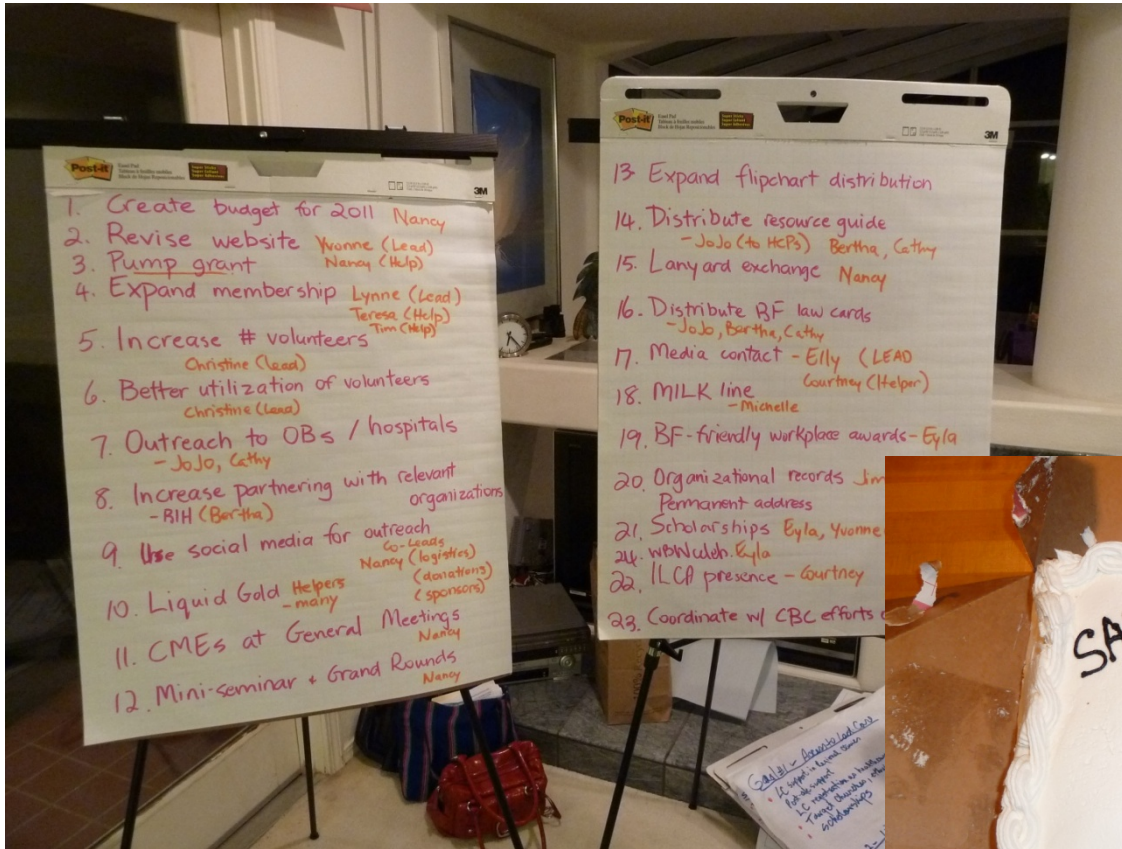 Post-it
3M
1. Create budget for 2011 Nancy
2. Revise website Yvonne (Lead)
Nancy (Help)
3. Pump grant
4. Expand membership Lynne (Lead)
Teresa (Help)
Tim (Help)
5. Increase # volunteers
Christine (Lead)
6. Better utilization of volunteers
Christine (Lead)
7. Outreach to OBs / hospitals
- JoJo, Cathy
8. Increase partnering with relevant
organizations
- BIH (Bertha)
9. Use social media for outreach
Co-Leads
Nancy (logistics)
(donations)
(sponsors)
10. Liquid Gold Helpers
- many
11. CMEs at General Meetings
Nancy
12. Mini-seminar + Grand Rounds
Nancy
Post-it
3M
13. Expand flipchart distribution
14. Distribute resource guide
- JoJo (to HCPs) Bertha, Cathy
15. Lanyard exchange Nancy
16. Distribute BF law cards
- JoJo, Bertha, Cathy
17. Media contact - Elly (LEAD
Courtney (Helper)
18. MILK line
- Michelle
19. BF-friendly workplace awards - Eyla
20. Organizational records Jim
Permanent address
21. Scholarships Eyla, Yvonne
24. WBW celeb. Eyla
22. ILCA presence - Courtney
23. Coordinate w/ CBC efforts
LC support in
support
Target churches,
scholarships
SA